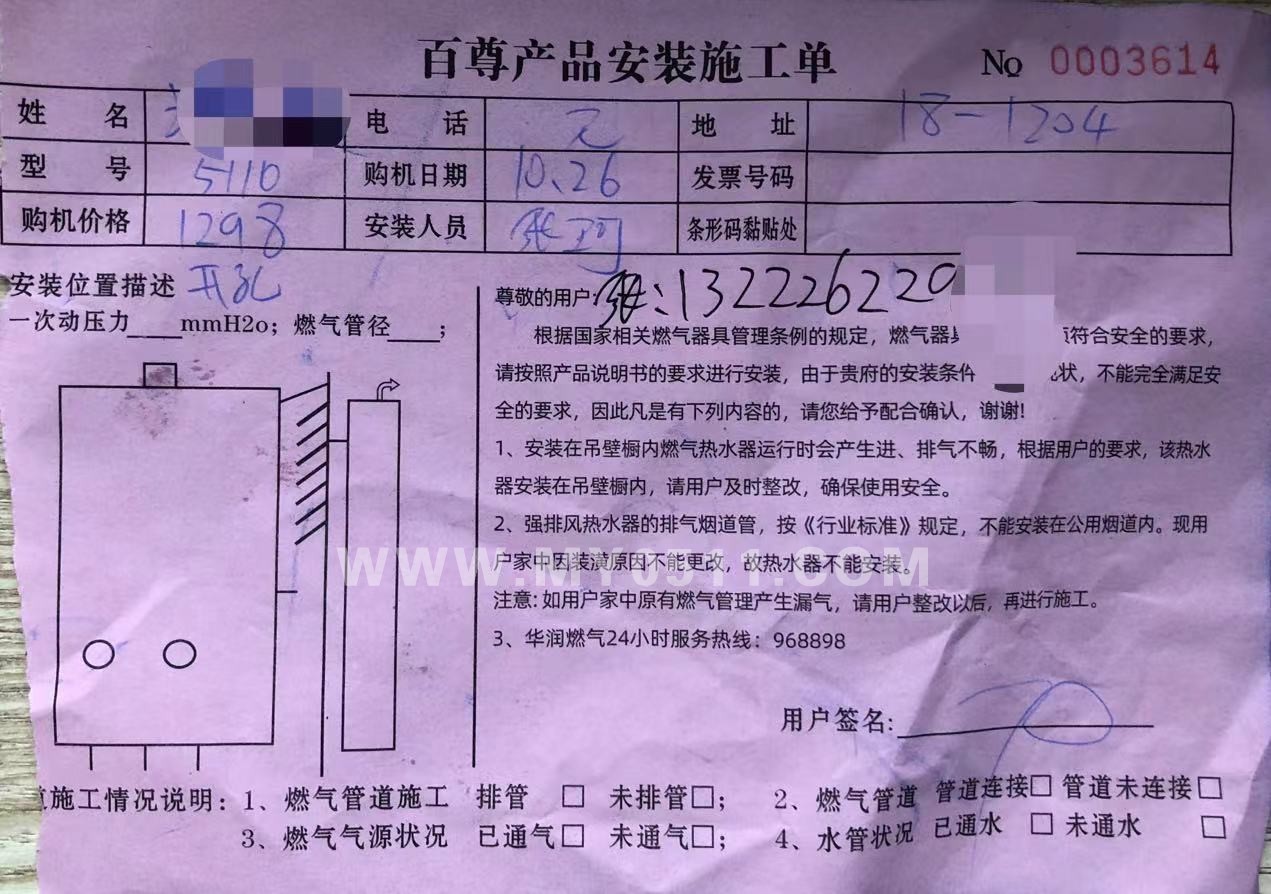 百尊产品安装施工单 No 0003614
姓名 电话 地址 18-1204
型号 5110 购机日期 10.26 发票号码
购机价格 1298 安装人员 张珂 条形码黏贴处
安装位置描述 开孔
一次动压力 mmH2o；燃气管径 ；
尊敬的用户： 张：132226229
根据国家相关燃气器具管理条例的规定，燃气器具 须符合安全的要求，
请按照产品说明书的要求进行安装，由于贵府的安装条件 状，不能完全满足安
全的要求，因此凡是有下列内容的，请您给予配合确认，谢谢!
1、安装在吊壁橱内燃气热水器运行时会产生进、排气不畅，根据用户的要求，该热水
器安装在吊壁橱内，请用户及时整改，确保使用安全。
2、强排风热水器的排气烟道管，按《行业标准》规定，不能安装在公用烟道内。现用
户家中因装潢原因不能更改，故热水器不能安装。
WWW.MY0511.COM
注意:如用户家中原有燃气管理产生漏气，请用户整改以后，再进行施工。
3、华润燃气24小时服务热线：968898
用户签名:
施工情况说明：1、燃气管道施工 排管 □ 未排管□； 2、燃气管道 管道连接□ 管道未连接□
3、燃气气源状况 已通气□ 未通气□； 4、水管状况 已通水 □ 未通水 □